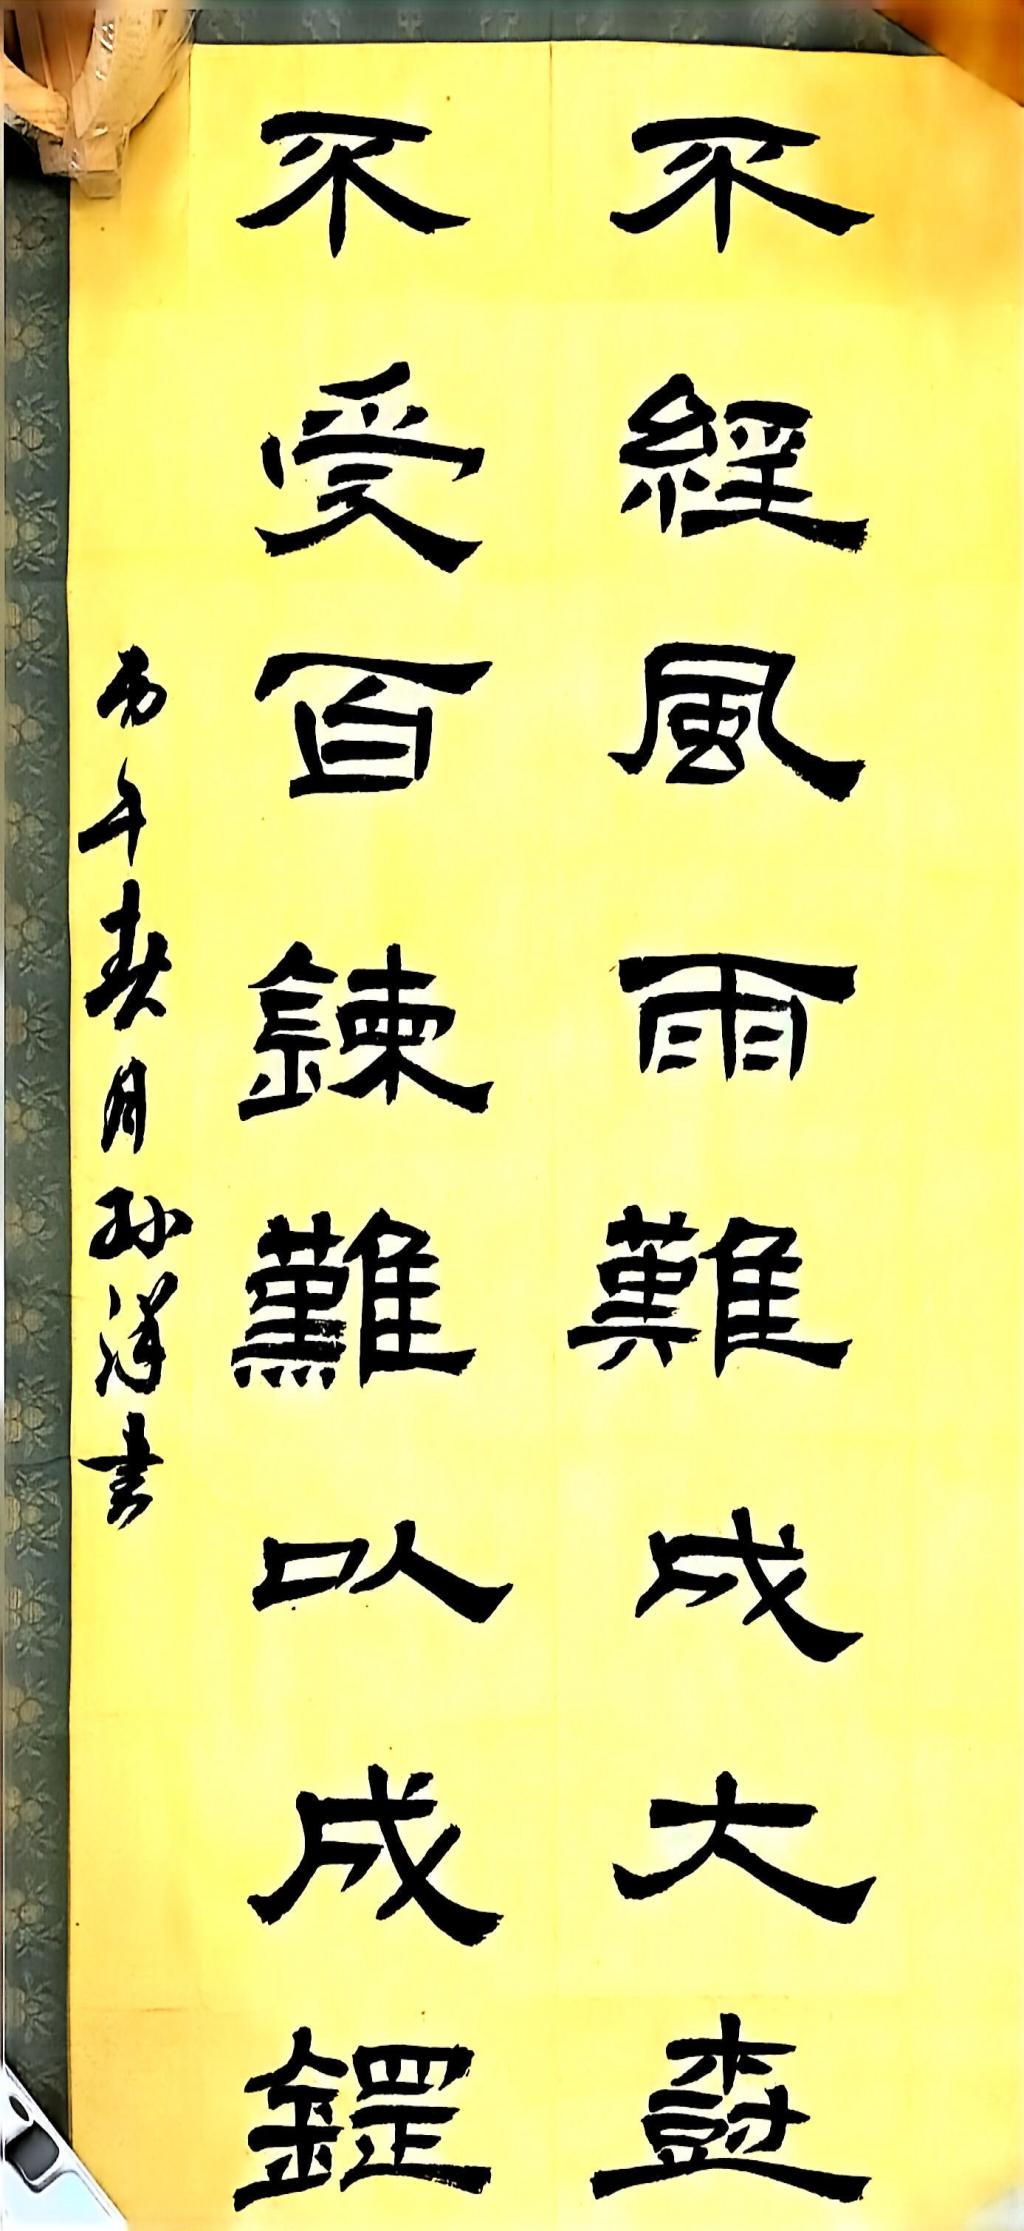 不經風雨難成大樹
不受百鍊難以成鋼
丙午春月孙洋書